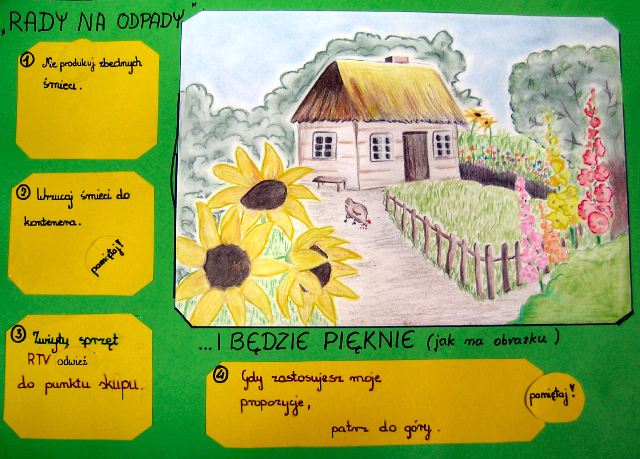 „RADY NA ODPADY”
1 Nie produkuj zbędnych
śmieci.
2 Wrzucaj śmieci do
kontenera.
pamiętaj!
3 Zużyty sprzęt
RTV odwieź
do punktu skupu.
...I BĘDZIE PIĘKNIE (jak na obrazku)
4 Gdy zastosujesz moje
propozycje,
patrz do góry.
pamiętaj!